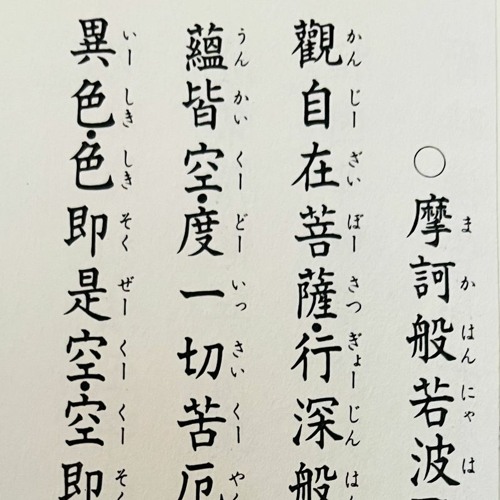 ○摩訶般若波
まかはんにゃは
觀自在菩薩・行深般
かんじーざいぼーさつぎょーじんはん
蘊皆空・度一切苦厄
うんかいくーどーいっさいくーやく
異色・色即是空・空即
いーしきしきそくぜーくーくーそく